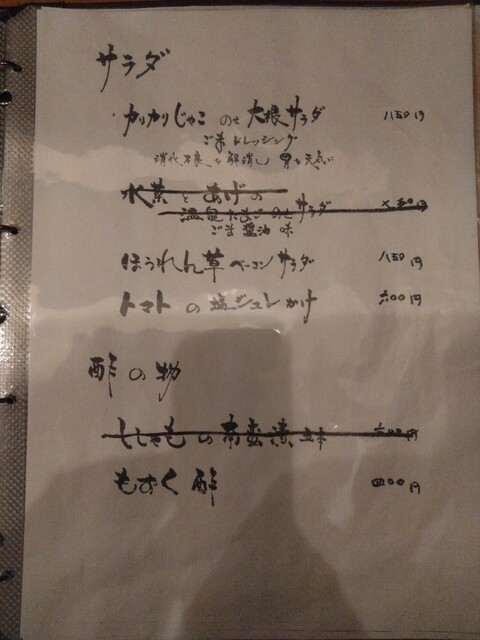 サラダ
カリカリじゃこのせ大根サラダ 八五〇円
ごまドレッシング
消化不良を解消し 胃を元気に
水菜とあげの
温泉たまごのせサラダ 五〇円
ごま醤油味
ほうれん草ベーコンサラダ 八五〇円
トマトの塩ジュレかけ 六〇〇円
酢の物
ししゃもの南蛮漬 六〇〇円
もずく酢 四〇〇円